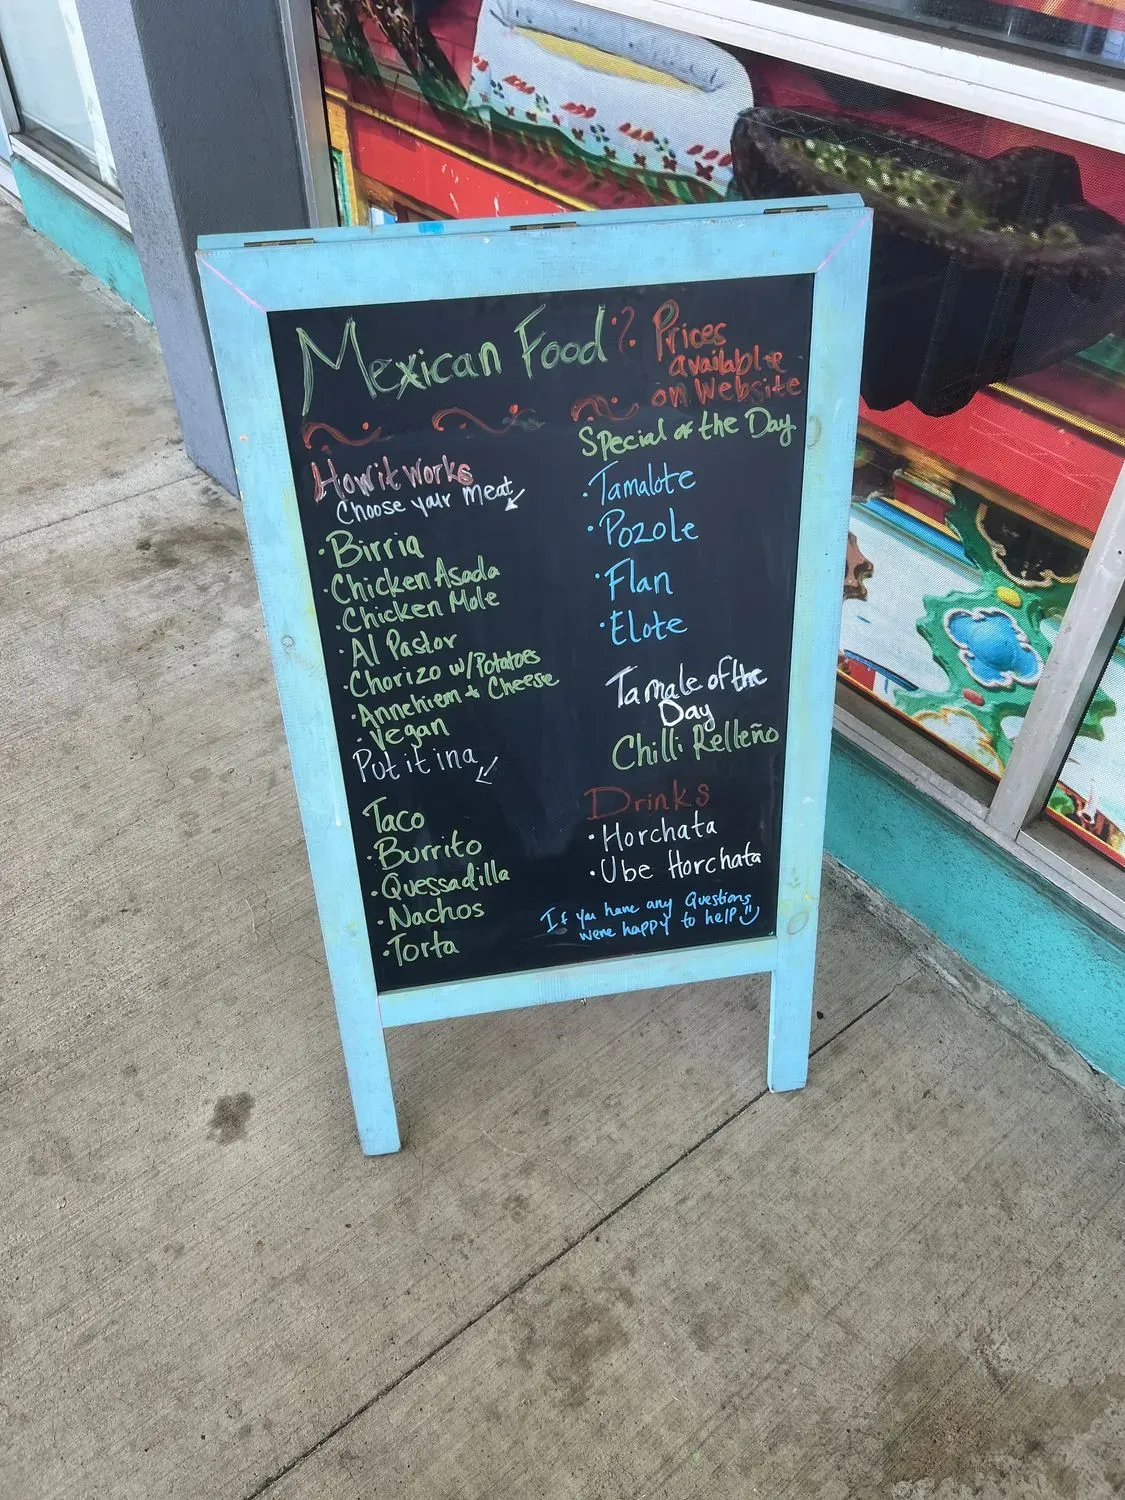 Mexican Food
Prices
available
on Website
How it works
Choose your meat
Birria
Chicken Asada
Chicken Mole
Al Pastor
Chorizo w/Potatoes
Annehiem + Cheese
Vegan
Put it in a
Taco
Burrito
Quessadilla
Nachos
Torta
Special of the Day
Tamalote
Pozole
Flan
Elote
Tamale of the
Day
Chilli Relleño
Drinks
Horchata
Ube Horchata
If you have any Questions
were happy to help